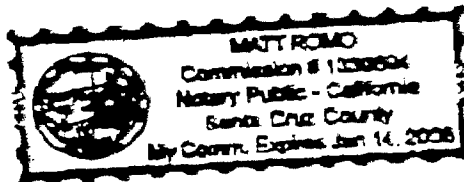 MATT ROMO
Commission #
Notary Public - California
Santa Cruz County
My Comm. Expires Jan 14, 2006